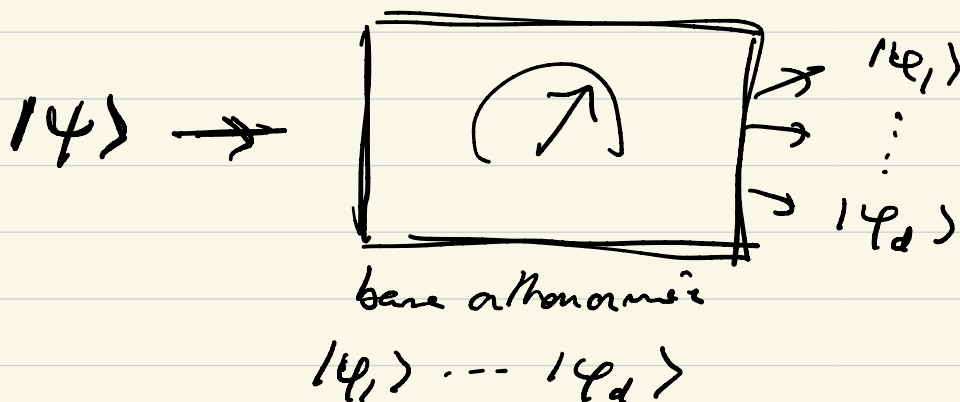 |ψ⟩
|φ₁⟩
⋮
|φ_d⟩
base orthonormée
|φ₁⟩ ⋯ |φ_d⟩